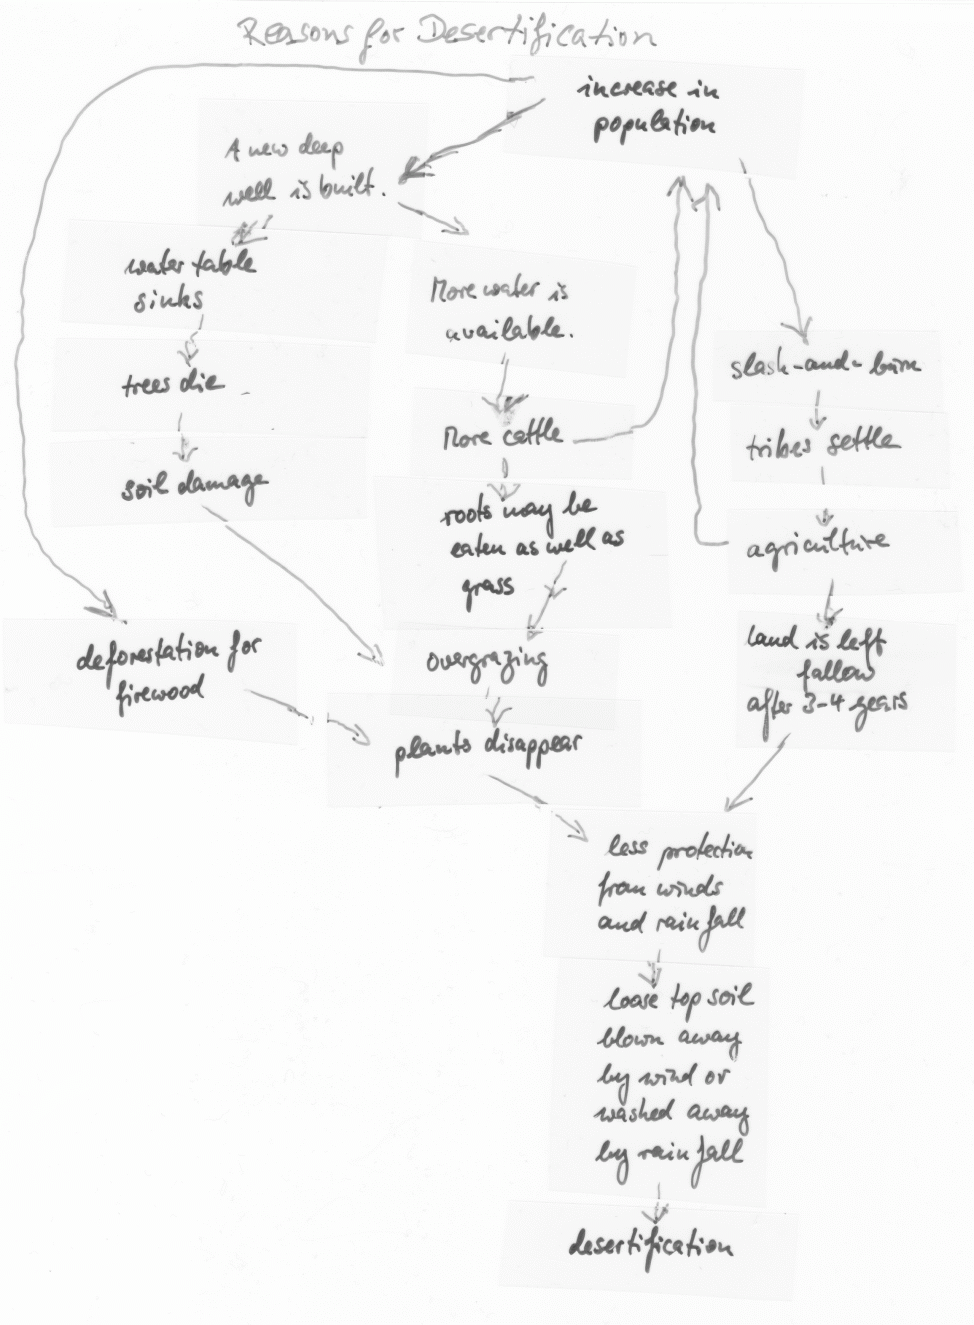 Reasons for Desertification
increase in
population
A new deep
well is built.
water table
sinks
More water is
available.
trees die
slash-and-burn
More cattle
tribes settle
soil damage
roots may be
eaten as well as
grass
agriculture
deforestation for
firewood
overgrazing
land is left
fallow
after 3-4 years
plants disappear
less protection
from winds
and rainfall
loose top soil
blown away
by wind or
washed away
by rainfall
desertification